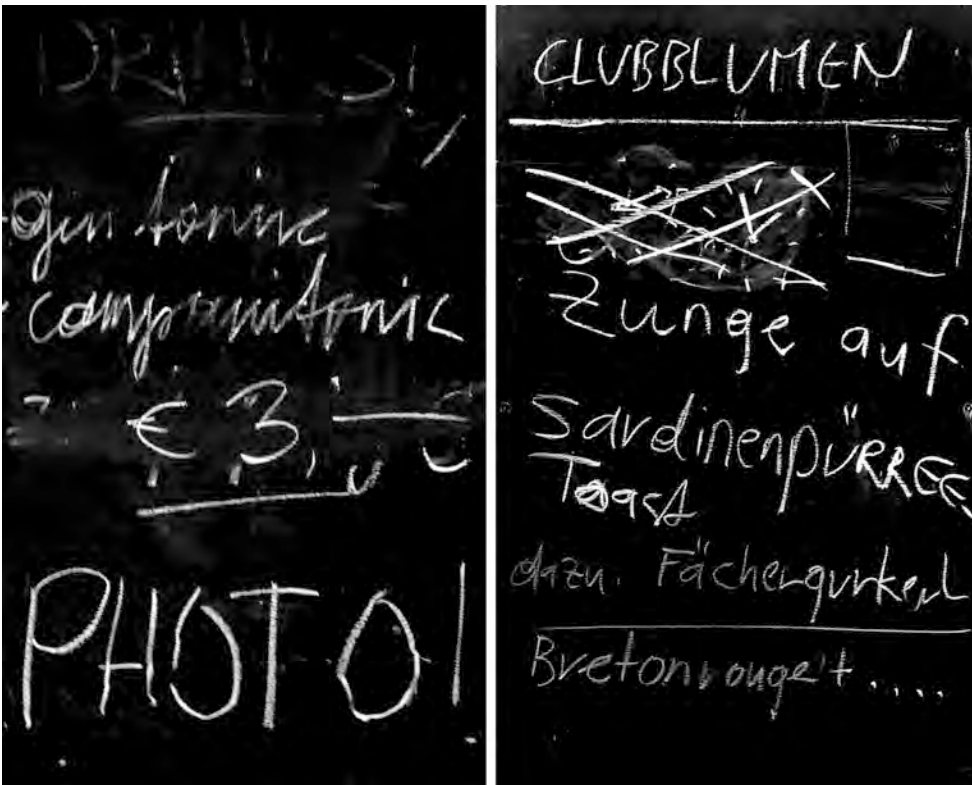 gin tonic
camparitonic
€ 3,-
PHOTO!
CLUBBLUMEN
Zunge auf
SardinenpüRREE
Toast
dazu. Fächergurkerl